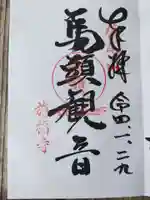 奉拝 令四、一、二九
馬頭観音